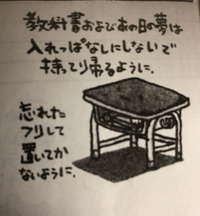 教科書およびあの日の夢は
入れっぱなしにしないで
持って帰るように.
忘れた
フリして
置いてか
ないように.